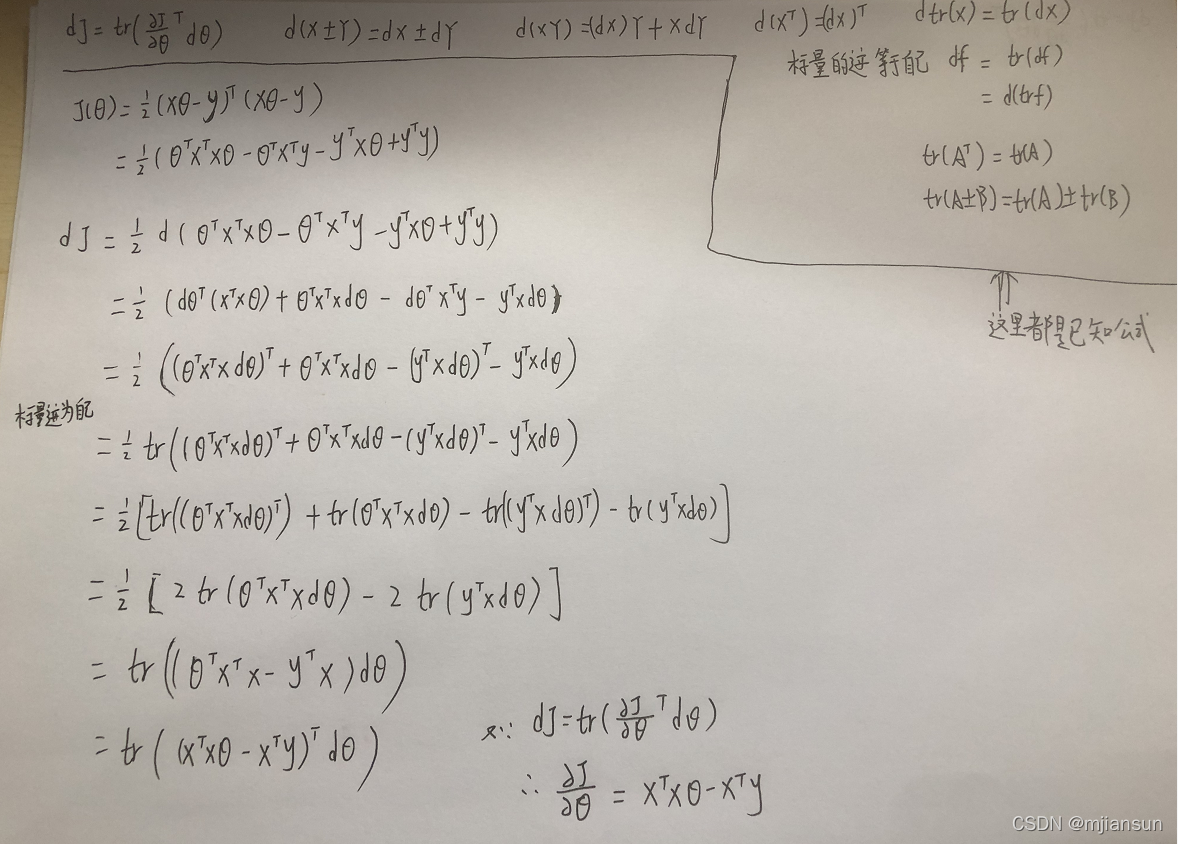 dJ = tr(∂J/∂θ ᵀ dθ)  d(X±Y)=dX±dY  d(XY)=(dX)Y+XdY  d(Xᵀ)=(dX)ᵀ  dtr(X)=tr(dX)
标量的迹等于自己 df = tr(df)
= d(trf)
tr(Aᵀ)=tr(A)
tr(A±B)=tr(A)±tr(B)
这里都是已知公式
J(θ)=½(Xθ-y)ᵀ(Xθ-y)
=½(θᵀXᵀXθ-θᵀXᵀy-yᵀXθ+yᵀy)
dJ = ½ d(θᵀXᵀXθ-θᵀXᵀy-yᵀXθ+yᵀy)
=½(dθᵀ(XᵀXθ)+θᵀXᵀXdθ-dθᵀXᵀy-yᵀXdθ)
=½((θᵀXᵀXdθ)ᵀ+θᵀXᵀXdθ-(yᵀXdθ)ᵀ-yᵀXdθ)
标量迹为自己
=½tr((θᵀXᵀXdθ)ᵀ+θᵀXᵀXdθ-(yᵀXdθ)ᵀ-yᵀXdθ)
=½[tr((θᵀXᵀXdθ)ᵀ)+tr(θᵀXᵀXdθ)-tr((yᵀXdθ)ᵀ)-tr(yᵀXdθ)]
=½[2tr(θᵀXᵀXdθ)-2tr(yᵀXdθ)]
=tr((θᵀXᵀX-yᵀX)dθ)
=tr((XᵀXθ-Xᵀy)ᵀdθ)
又∵ dJ=tr(∂J/∂θ ᵀ dθ)
∴ ∂J/∂θ = XᵀXθ-Xᵀy
CSDN @mjiansun